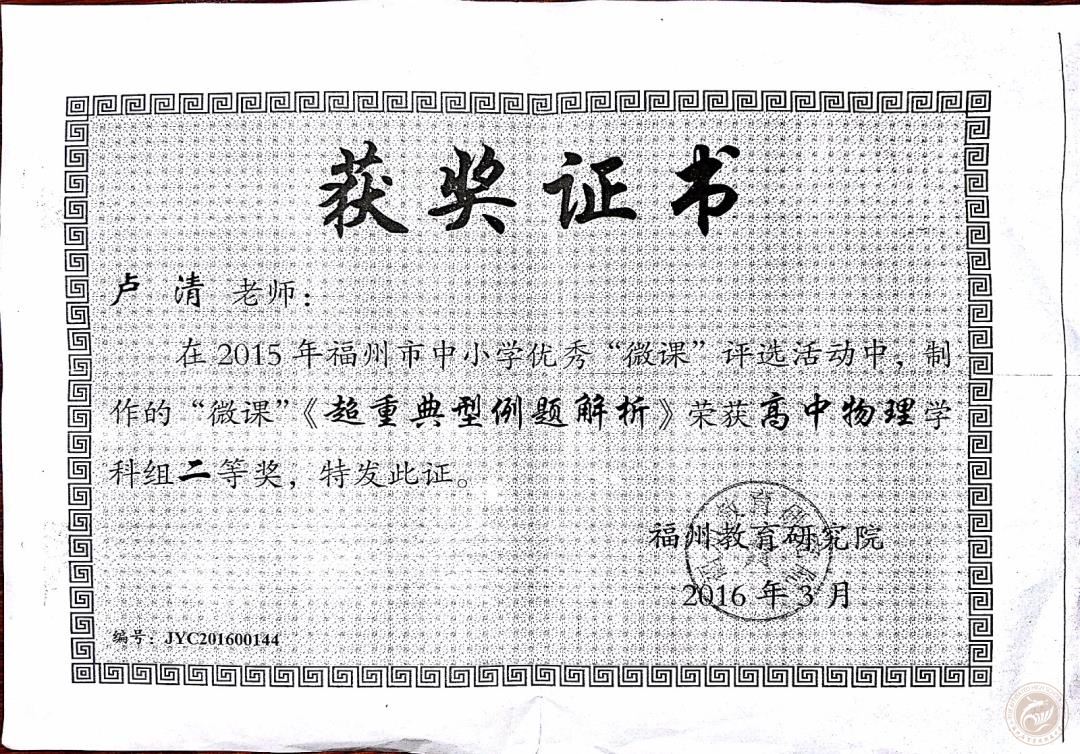 获奖证书
卢 清 老师：
在 2015 年福州市中小学优秀“微课”评选活动中，制
作的“微课”《超重典型例题解析》荣获高中物理学
科组二等奖，特发此证。
福州教育研究院
2016 年 3 月
编号：JYC201600144